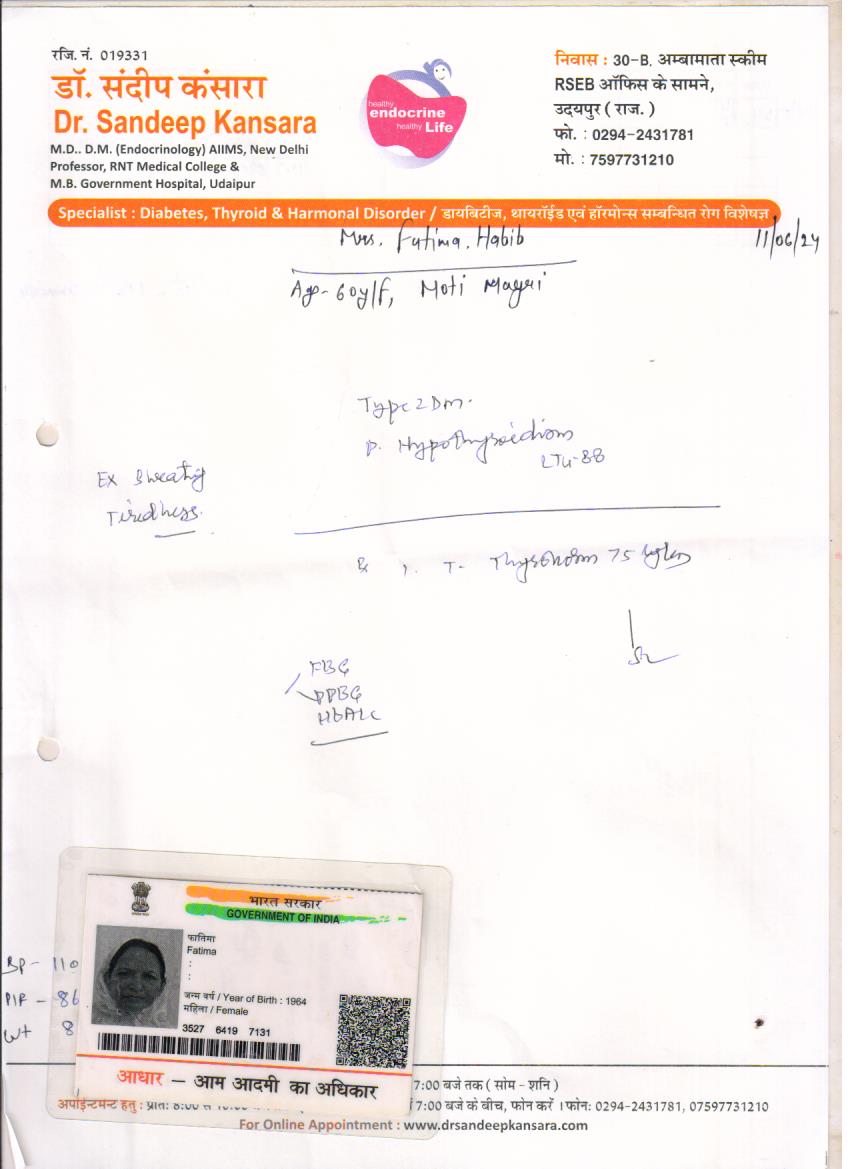 रजि. नं. 019331
डॉ. संदीप कंसारा
Dr. Sandeep Kansara
M.D.. D.M. (Endocrinology) AIIMS, New Delhi
Professor, RNT Medical College &
M.B. Government Hospital, Udaipur
healthy
endocrine
healthy Life
निवास : 30-B, अम्बामाता स्कीम
RSEB ऑफिस के सामने,
उदयपुर ( राज. )
फो. : 0294-2431781
मो. : 7597731210
Specialist : Diabetes, Thyroid & Harmonal Disorder / डायबिटीज, थायरॉईड एवं हॉरमोन्स सम्बन्धित रोग विशेषज्ञ
Mrs. Fatima. Habib
11/06/24
Age-60y/f, Moti Magri
Type 2 Dm.
P. Hypothyroidism
LTU-88
Ex Sweating
Tiredness.
Rx 1. T. Thyronorm 75
FBG
PPBG
HbA1c
भारत सरकार
GOVERNMENT OF INDIA
फातिमा
Fatima
:
:
जन्म वर्ष / Year of Birth : 1964
महिला / Female
3527 6419 7131
आधार – आम आदमी का अधिकार
BP - 110
P/R - 86
Wt 8
7:00 बजे तक ( सोम - शनि )
अपॉईन्टमेन्ट हतु : प्रात: 8:00 से
7:00 बजे के बीच, फोन करें । फोन: 0294-2431781, 07597731210
For Online Appointment : www.drsandeepkansara.com